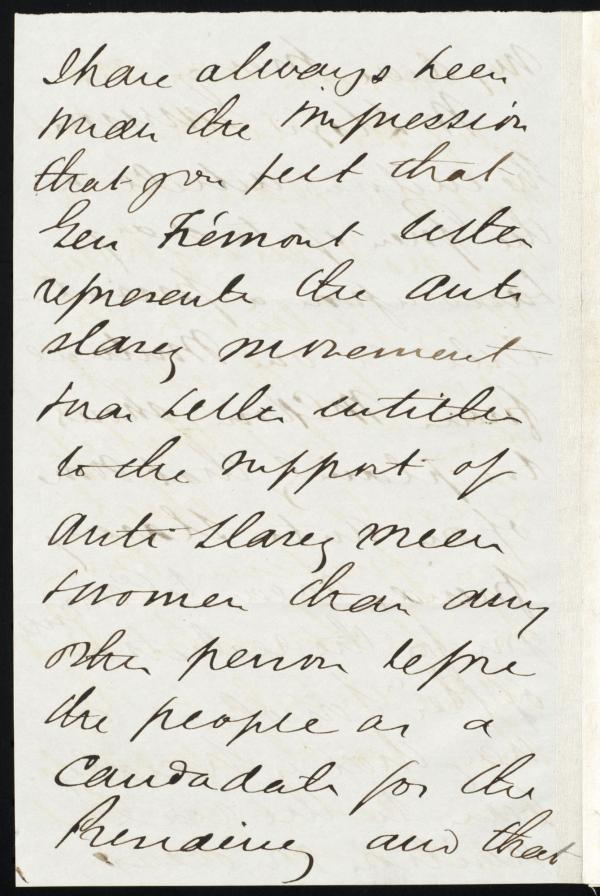 I have always been
under the impression
that you felt that
Gen Frémont better
represents the anti
slavery movement
& was better entitled
to the support of
anti slavery men
& women than any
other person before
the people as a
Candadate for the
Presidency and that